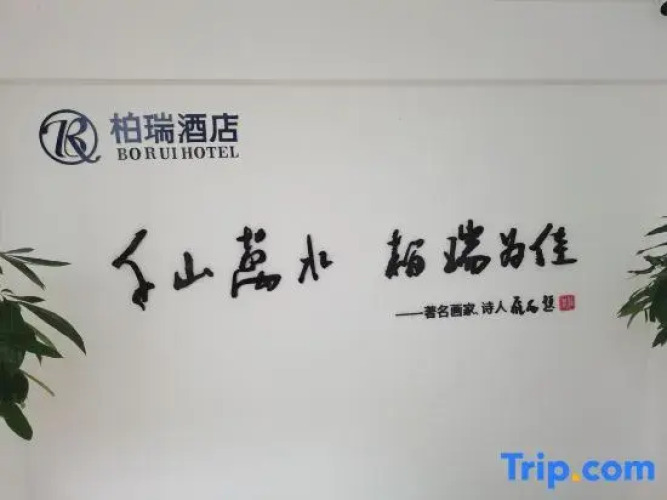 柏瑞酒店
BORUI HOTEL
千山萬水 柏瑞为佳
——著名画家、诗人
Trip.com